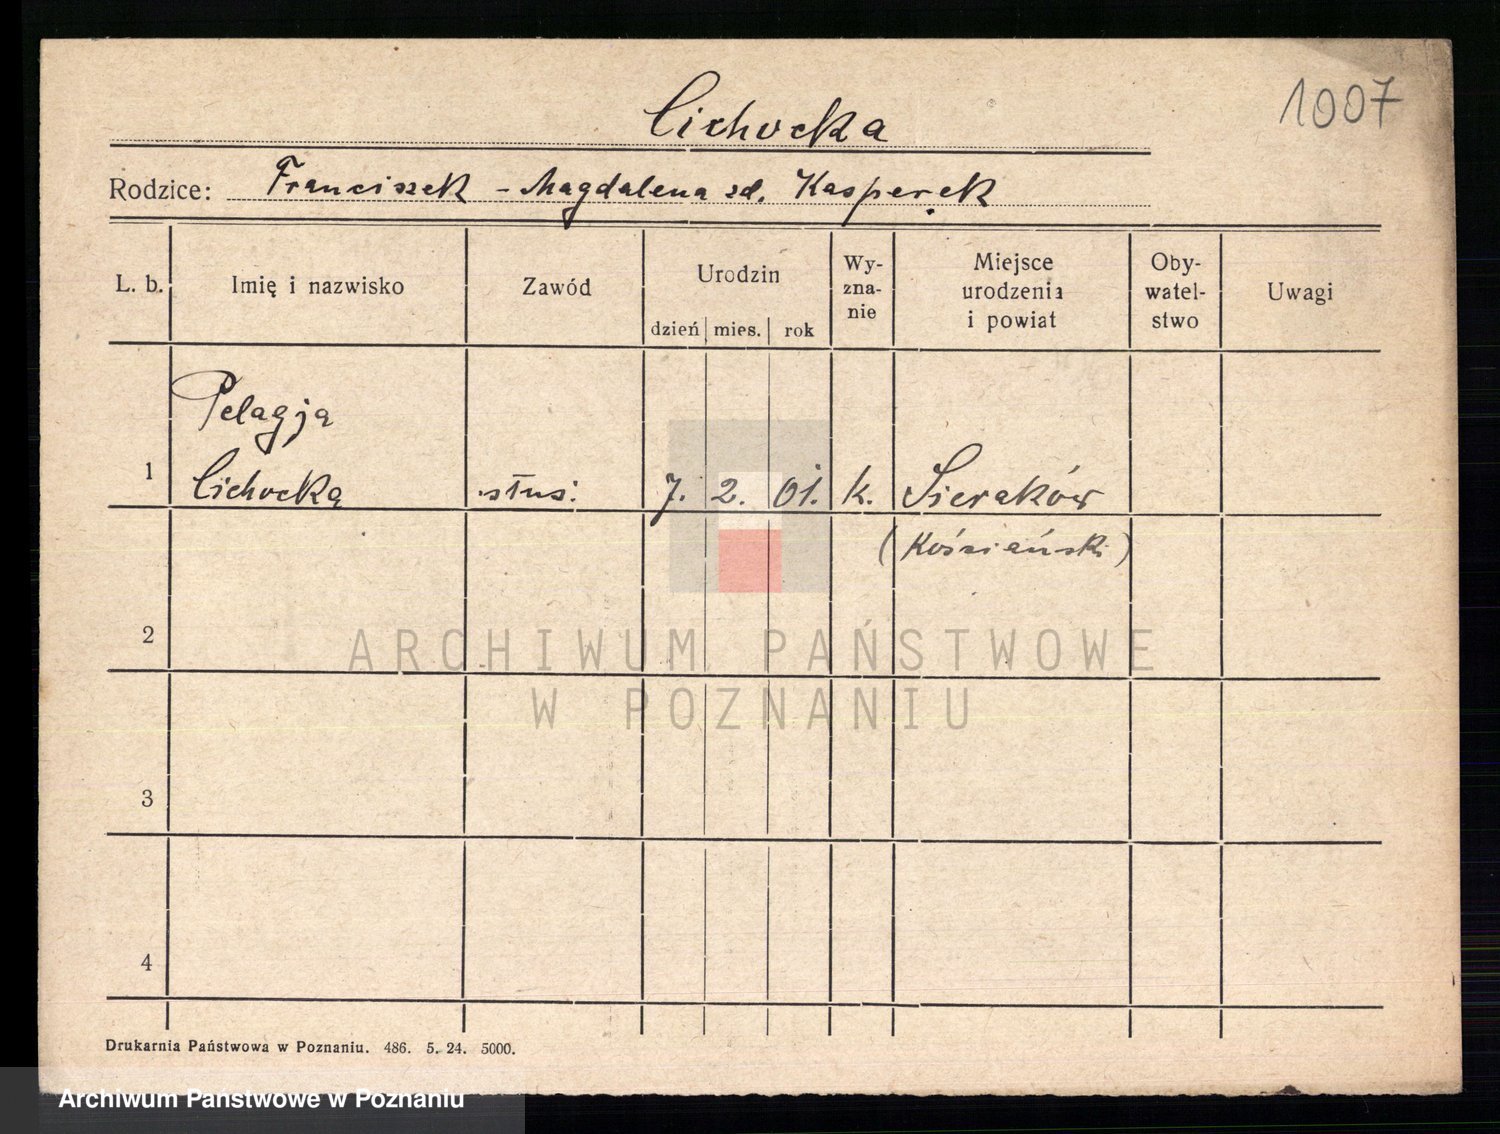 1007
Cichocka
Rodzice: Franciszek - Magdalena zd. Kasperek
L. b. Imię i nazwisko Zawód Urodzin dzień mies. rok Wy-zna-nie Miejsce urodzenia i powiat Oby-watel-stwo Uwagi
Pelagja
1 Cichocka służ. 7. 2. 01. k. Sieraków
(Kościański)
2
ARCHIWUM PAŃSTWOWE
W POZNANIU
3
4
Drukarnia Państwowa w Poznaniu. 486. 5. 24. 5000.
Archiwum Państwowe w Poznaniu